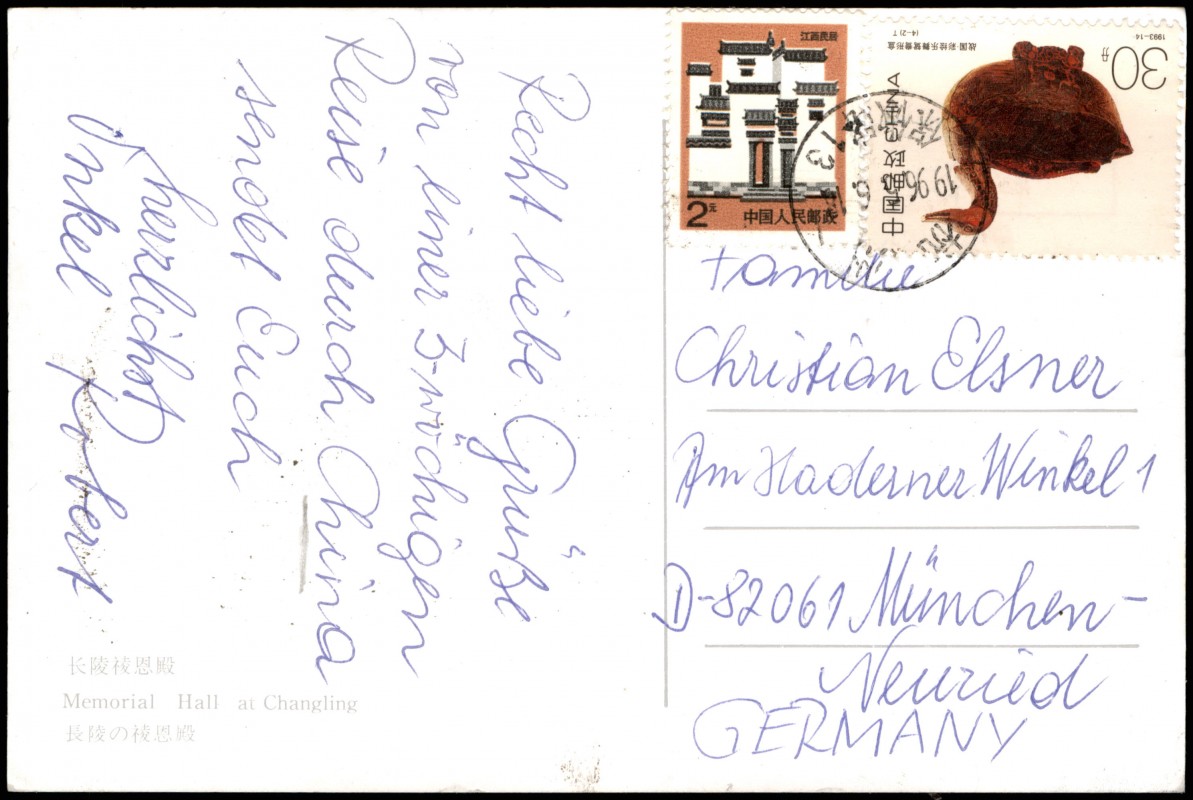 Recht liebe Grüße
von einer 3-wöchigen
Reise durch China
sendet Euch
herzlichst
Onkel Robert
长陵祾恩殿
Memorial Hall at Changling
長陵の祾恩殿
江西民居
2元
中国人民邮政
1993-14
(4-2)T
30分
战国·彩绘乐舞鸳鸯形盒
中国邮政 CHINA
1996
13
Familie
Christian Elsner
Am Haderner Winkel 1
D-82061 München-
Neuried
GERMANY